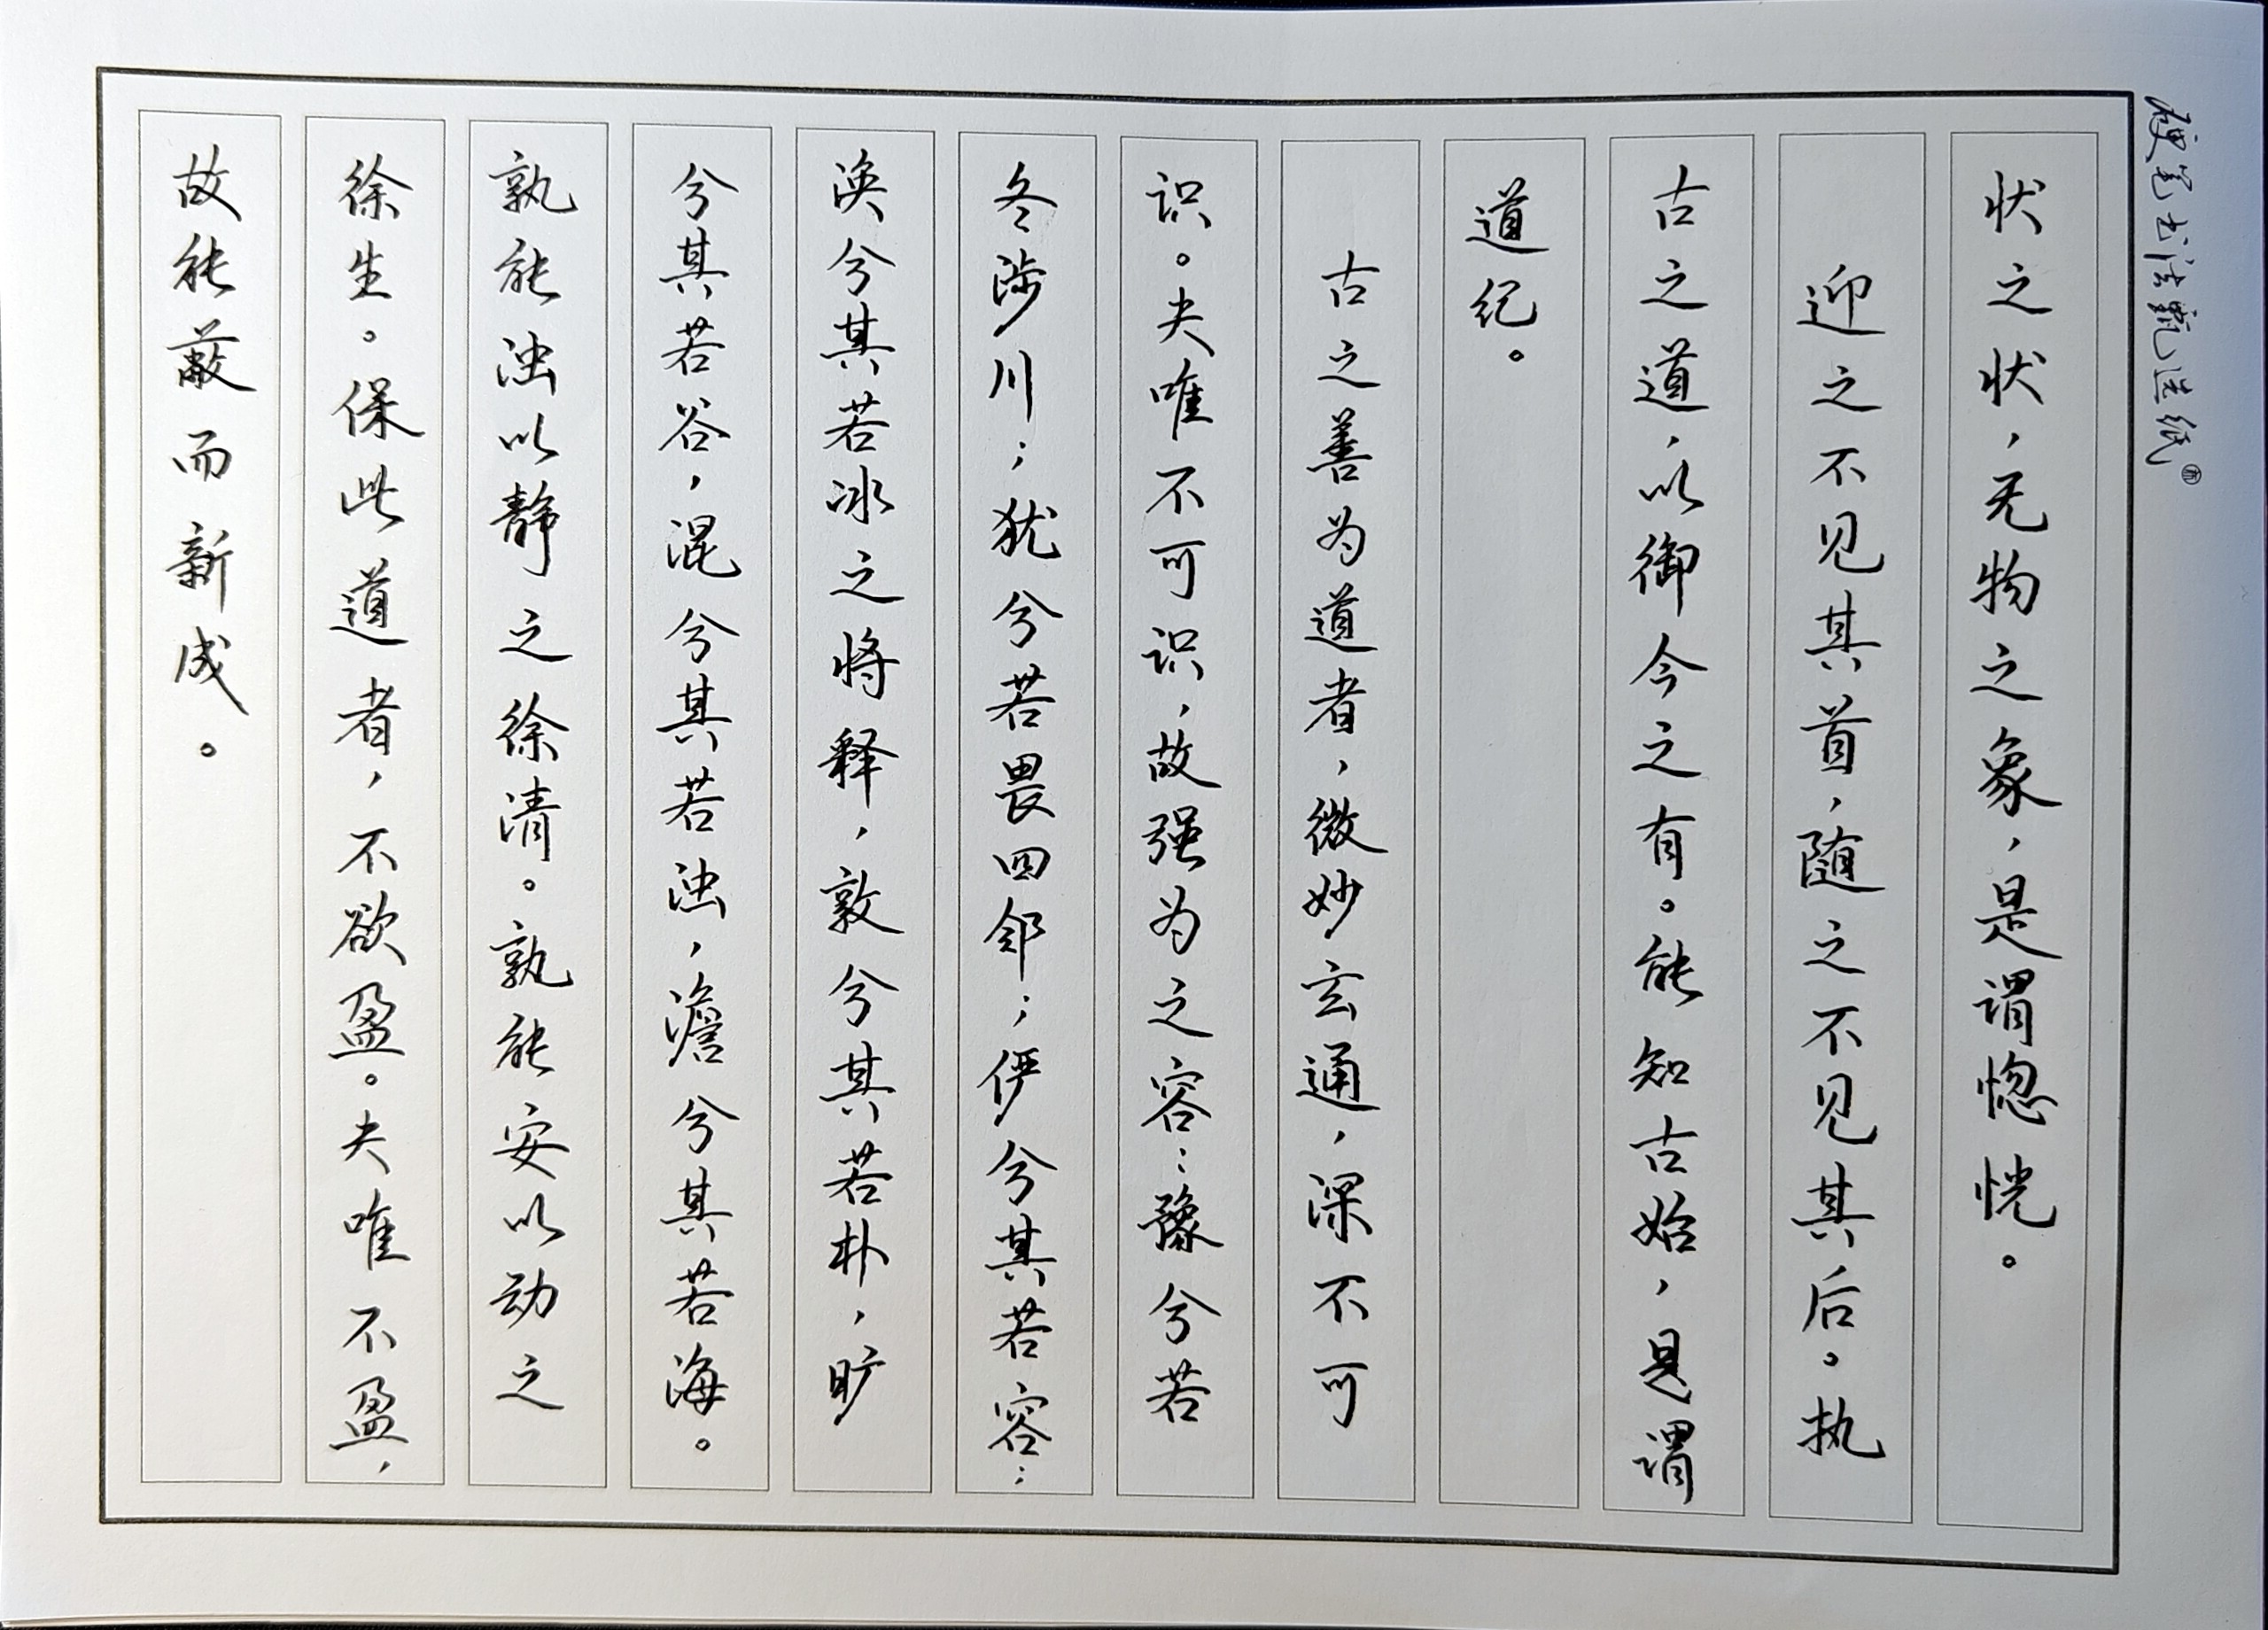 硬笔书法甄选纸
状之状，无物之象，是谓惚恍。
迎之不见其首，随之不见其后。执
古之道，以御今之有。能知古始，是谓
道纪。
古之善为道者，微妙玄通，深不可
识。夫唯不可识，故强为之容：豫兮若
冬涉川；犹兮若畏四邻；俨兮其若容；
涣兮其若冰之将释，敦兮其若朴，旷
兮其若谷，混兮其若浊，澹兮其若海。
孰能浊以静之徐清。孰能安以动之
徐生。保此道者，不欲盈。夫唯不盈，
故能蔽而新成。